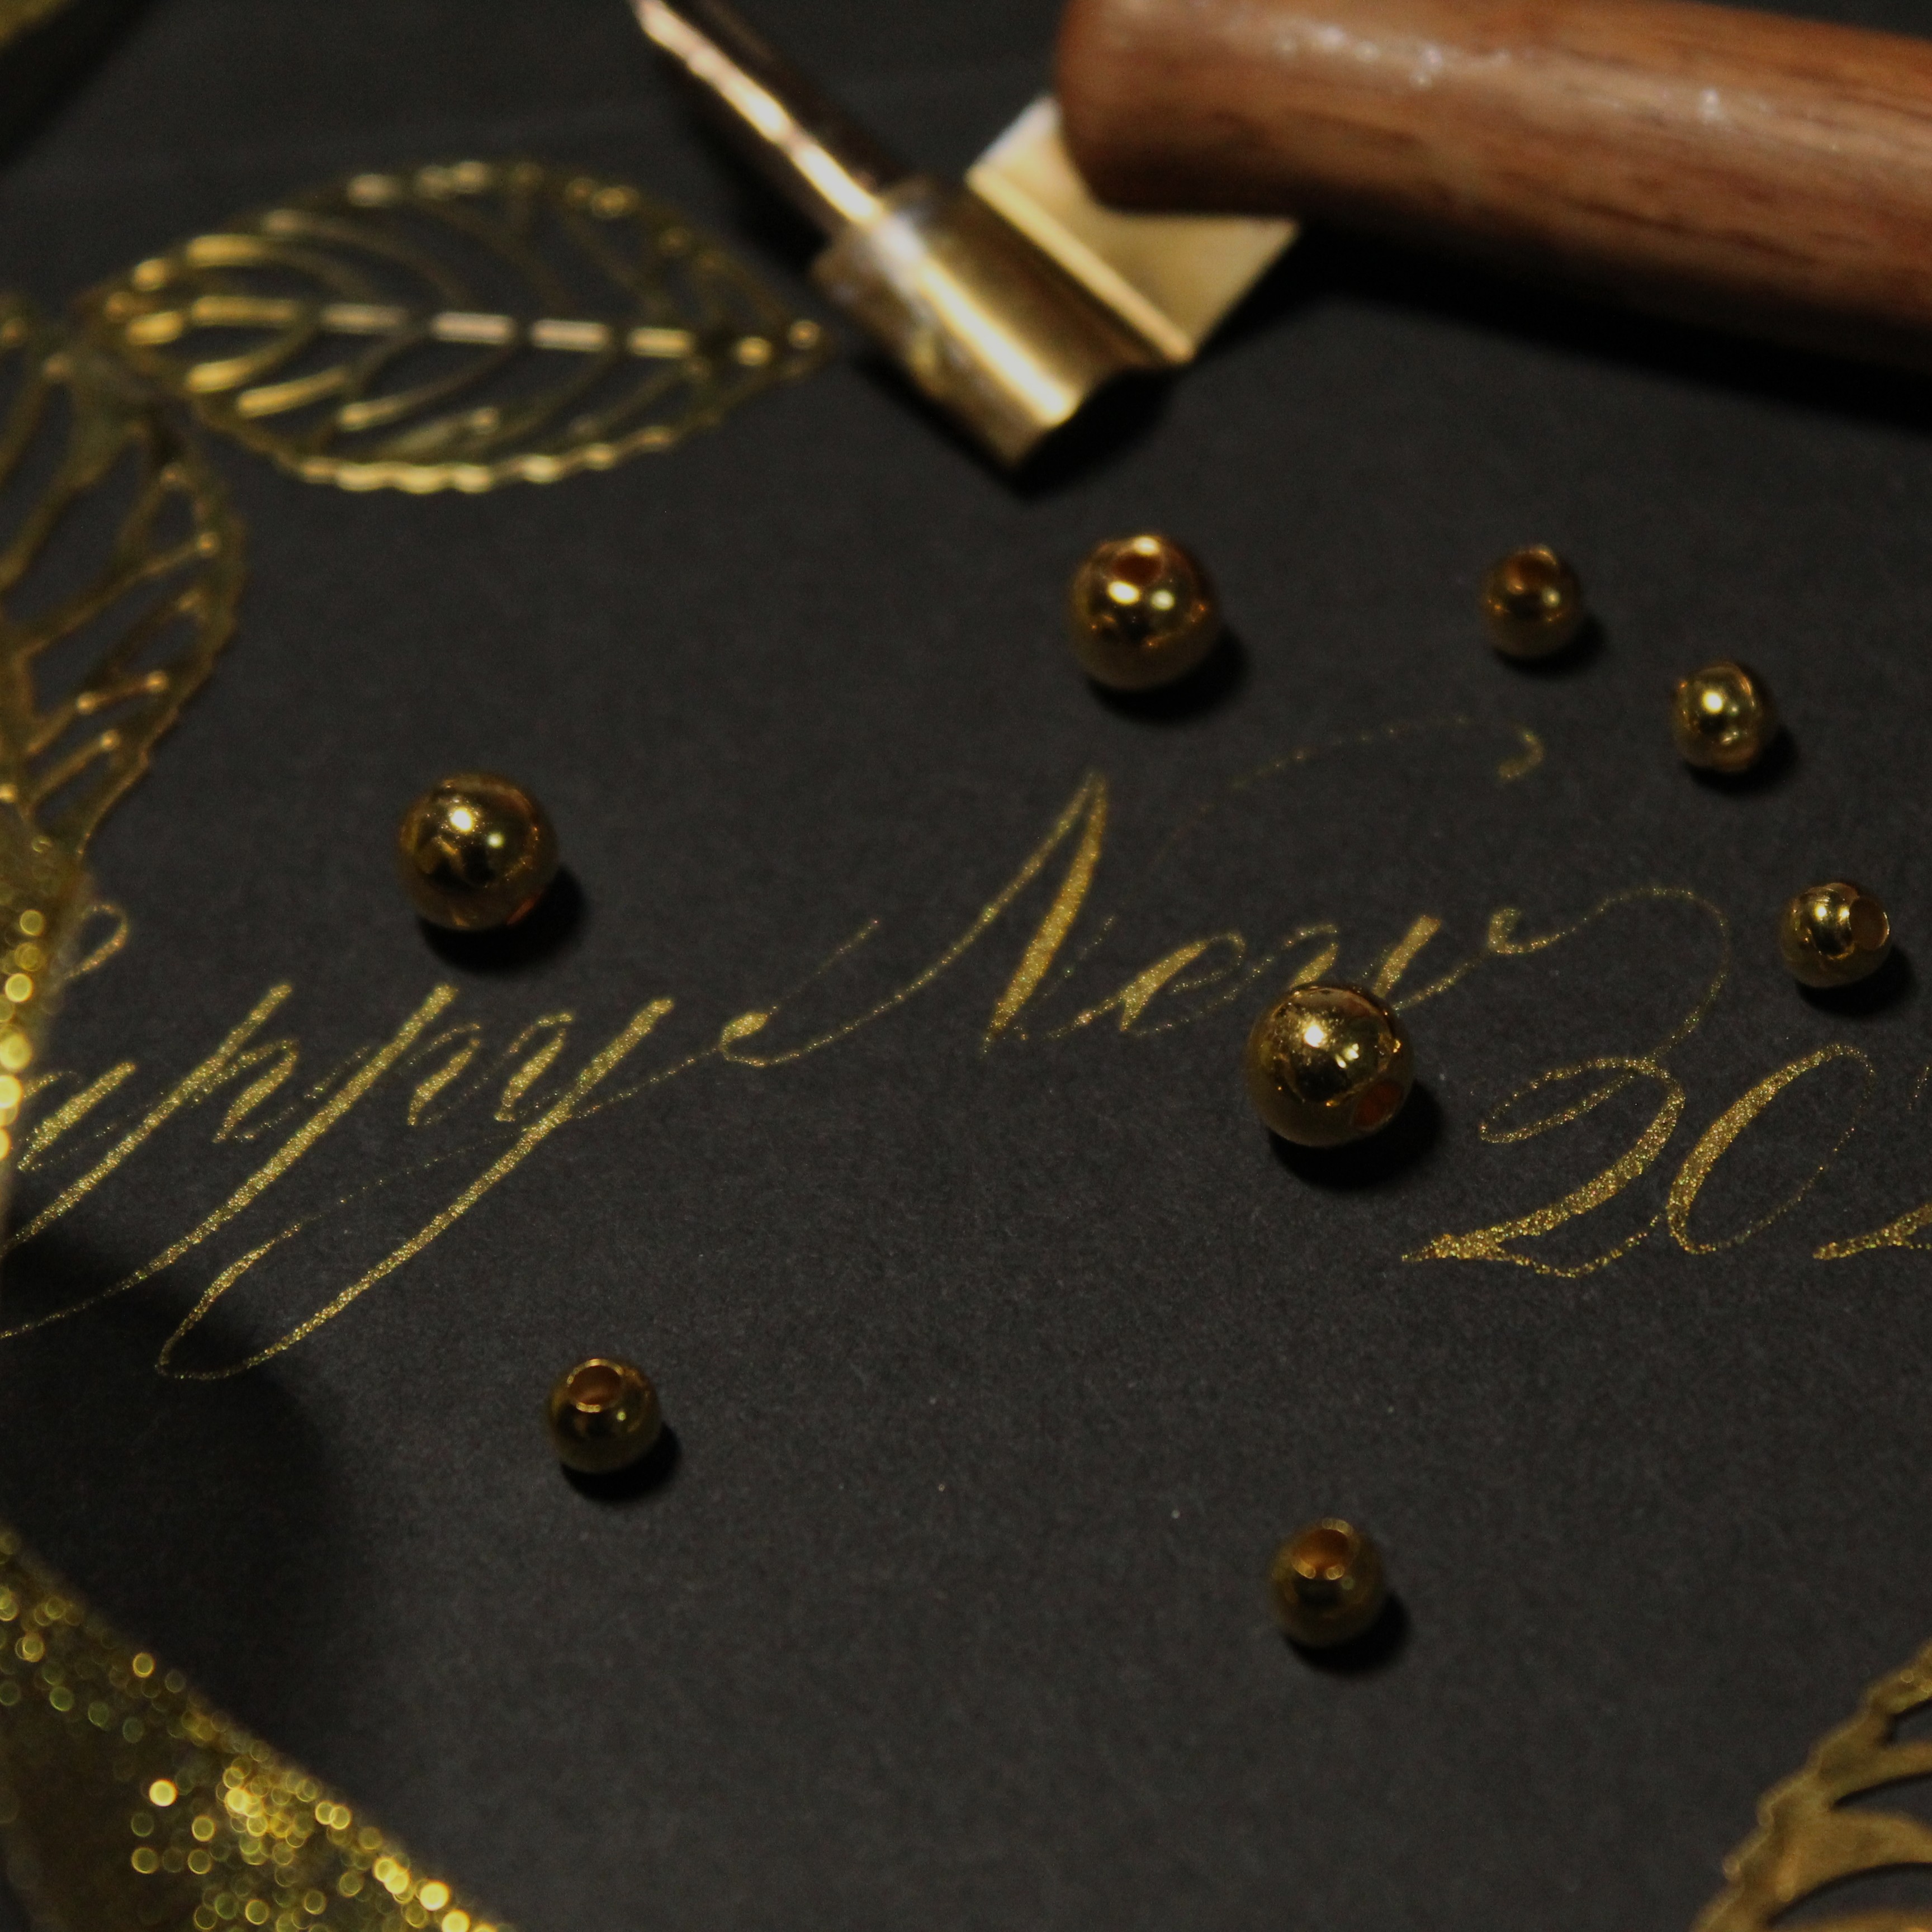 appy New
202